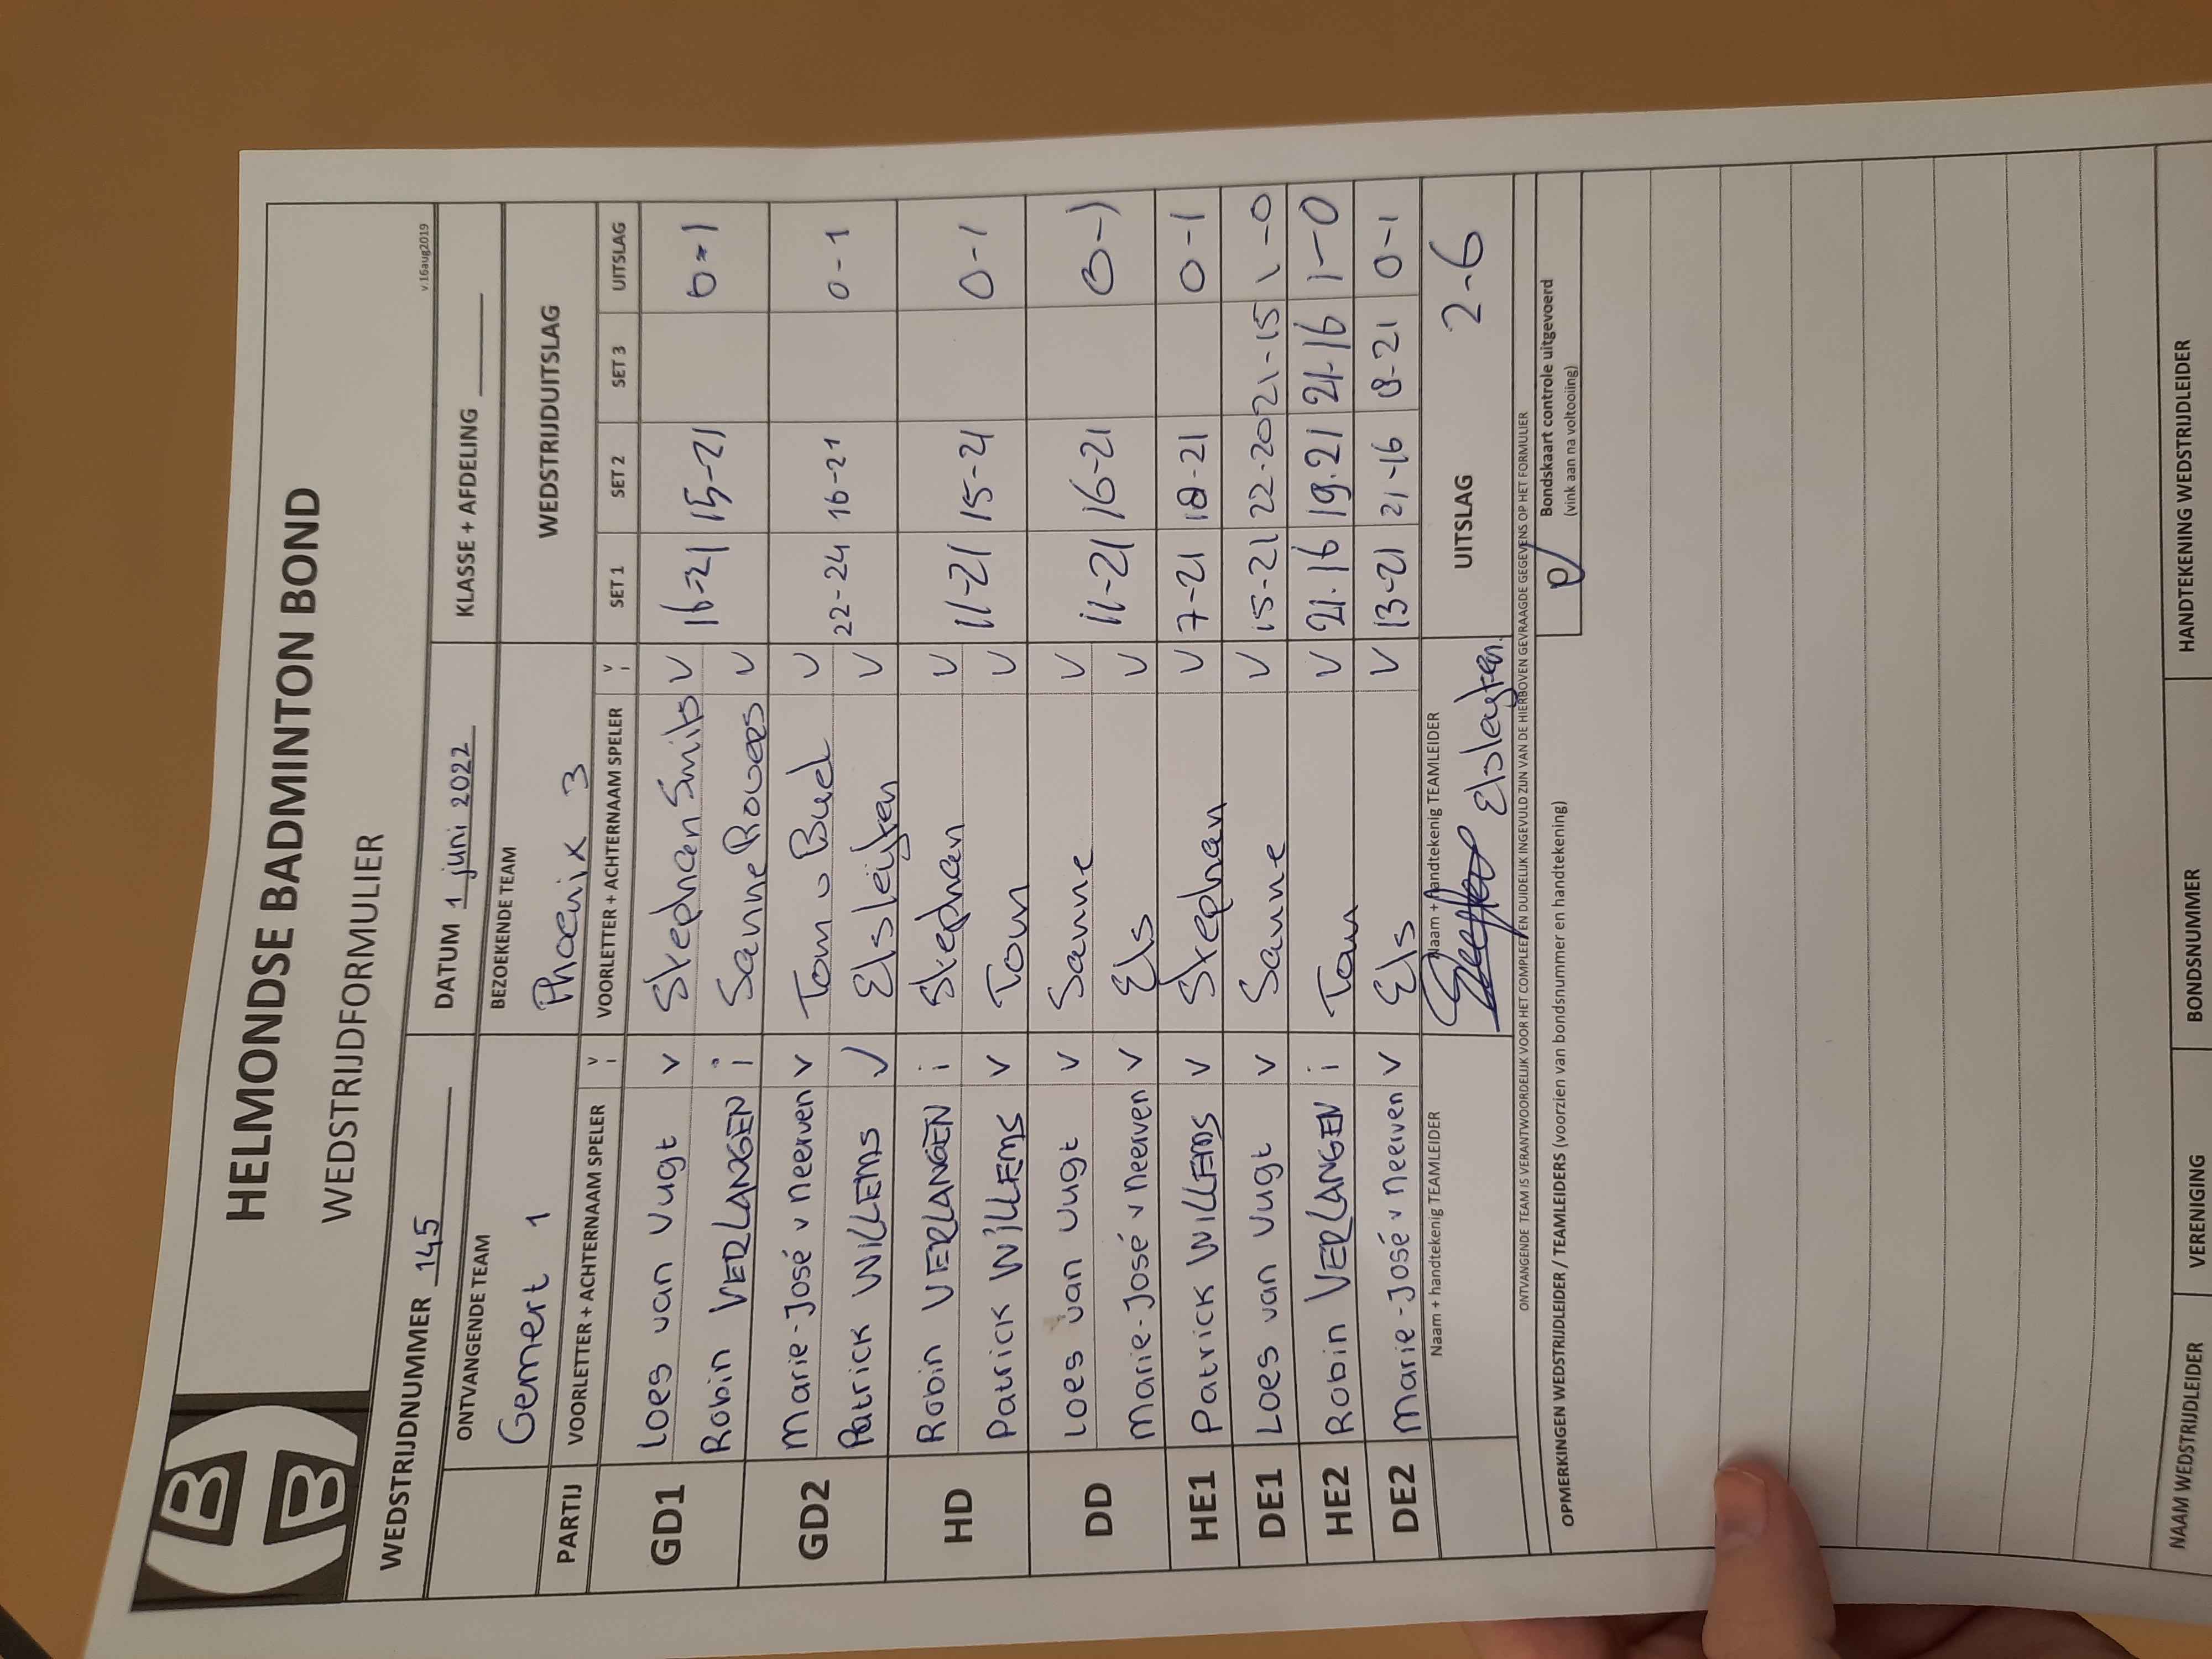 HELMONDSE BADMINTON BOND
WEDSTRIJDFORMULIER
v.16aug2019
WEDSTRIJDNUMMER 145 DATUM 1 juni 2022 KLASSE + AFDELING
ONTVANGENDE TEAM BEZOEKENDE TEAM WEDSTRIJDUITSLAG
Gemert 1 Phoenix 3
PARTIJ VOORLETTER + ACHTERNAAM SPELER v i VOORLETTER + ACHTERNAAM SPELER v i SET 1 SET 2 SET 3 UITSLAG
GD1 Loes van Vugt v Stephan Smits v 16-21 15-21 0-1
Robin VERLANGEN i Sanne Rovers v
GD2 Marie-José v Neerven v Tom v Bud v 22-24 16-21 0-1
Patrick WILLEMS v Els leijten v
HD Robin VERLANGEN i Stephan v 11-21 15-21 0-1
Patrick WILLEMS v Tom v
DD Loes van Vugt v Sanne v 11-21 16-21 0-1
Marie-José v Neerven v Els v
HE1 Patrick WILLEMS v Stephan v 7-21 18-21 0-1
DE1 Loes van Vugt v Sanne v 15-21 22-20 21-15 1-0
HE2 Robin VERLANGEN i Tom v 21-16 19-21 21-16 1-0
DE2 Marie-José v Neerven v Els v 13-21 21-16 8-21 0-1
Naam + handtekenig TEAMLEIDER Naam + handtekenig TEAMLEIDER UITSLAG 2-6
Els leijten
ONTVANGENDE TEAM IS VERANTWOORDELIJK VOOR HET COMPLEET EN DUIDELIJK INGEVULD ZIJN VAN DE HIERBOVEN GEVRAAGDE GEGEVENS OP HET FORMULIER
OPMERKINGEN WEDSTRIJDLEIDER / TEAMLEIDERS (voorzien van bondsnummer en handtekening) Bondskaart controle uitgevoerd
(vink aan na voltooiing)
NAAM WEDSTRIJDLEIDER VERENIGING BONDSNUMMER HANDTEKENING WEDSTRIJDLEIDER